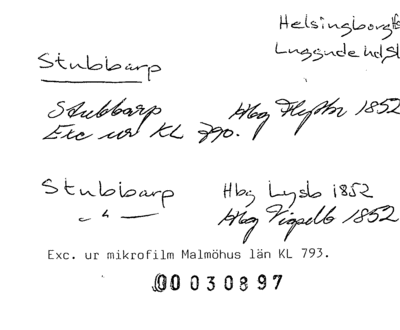 Helsingborgs
Luggude hdsl
Stubbarp
Stubbarp Hbg 1852
Exc ur KL 790.
Stubbarp Hbg Lysb 1852
— " — Hbg 1852
Exc. ur mikrofilm Malmöhus län KL 793.
00030897